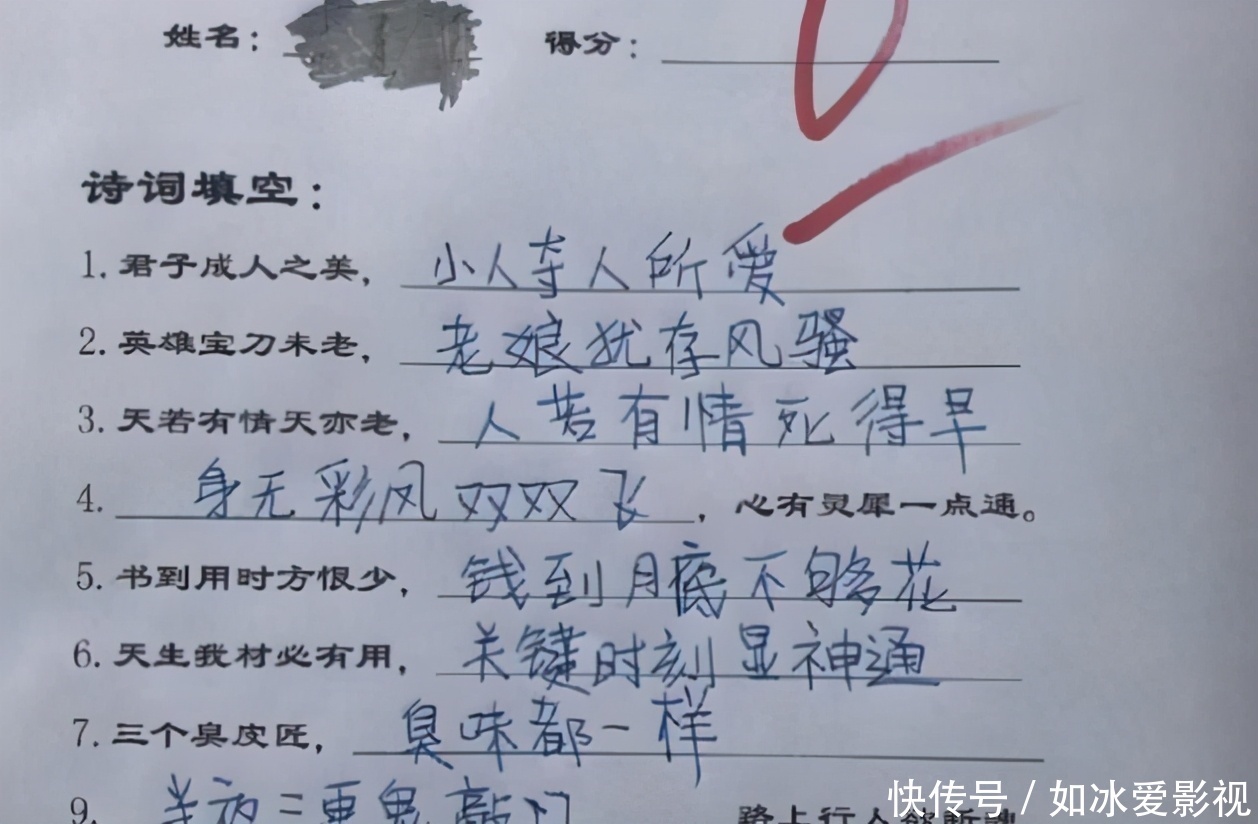 姓名： 得分：
诗词填空：
1. 君子成人之美， 小人夺人所爱
2. 英雄宝刀未老， 老娘犹存风骚
3. 天若有情天亦老， 人若有情死得早
4. 身无彩凤双双飞 ，心有灵犀一点通。
5. 书到用时方恨少， 钱到月底不够花
6. 天生我材必有用， 关键时刻显神通
7. 三个臭皮匠， 臭味都一样
9. 半夜三更鬼敲门 路上行人欲断魂
快传号 / 如冰爱影视